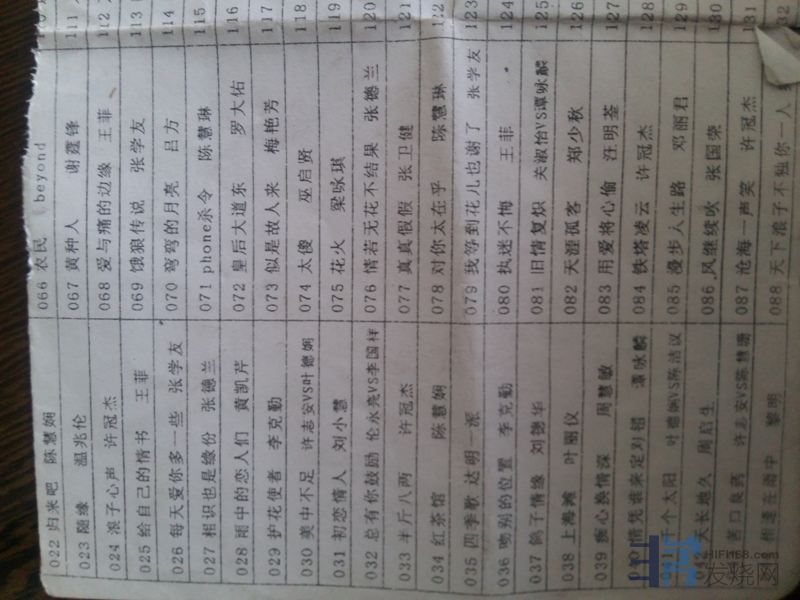 022 归来吧 陈慧娴
023 随缘 温兆伦
024 浪子心声 许冠杰
025 给自己的情书 王菲
026 每天爱你多一些 张学友
027 相识也是缘份 张德兰
028 雨中的恋人们 黄凯芹
029 护花使者 李克勤
030 美中不足 许志安VS叶德娴
031 初恋情人 刘小慧
032 总有你鼓励 伦永亮VS李国样
033 半斤八两 许冠杰
034 红茶馆 陈慧娴
035 四季歌 达明一派
036 吻别的位置 李克勤
037 鸽子情缘 刘德华
038 上海滩 叶丽仪
039 痴心换情深 周慧敏
040 情凭谁来定对错 谭咏麟
041 千个太阳 叶德娴VS陈洁议
天长地久 周启生
苦口良药 许志安VS陈慧珊
相逢在雨中 黎明
066 农民 beyond
067 黄种人 谢霆锋
068 爱与痛的边缘 王菲
069 饿狼传说 张学友
070 弯弯的月亮 吕方
071 phone杀令 陈慧琳
072 皇后大道东 罗大佑
073 似是故人来 梅艳芳
074 太傻 巫启贤
075 花火 梁咏琪
076 情若无花不结果 张德兰
077 真真假假 张卫健
078 对你太在乎 陈慧琳
079 我等到花儿也谢了 张学友
080 执迷不悔 王菲
081 旧情复炽 关淑怡VS谭咏麟
082 天涯孤客 郑少秋
083 用爱将心偷 汪明荃
084 铁塔凌云 许冠杰
085 漫步人生路 邓丽君
086 风继续吹 张国荣
087 沧海一声笑 许冠杰
088 天下浪子不独你一人
111
112
113
114
115
116
117
118
119
120
121
122
123
124
125
126
127
128
129
130
131
132
HIFI168.com
发烧网